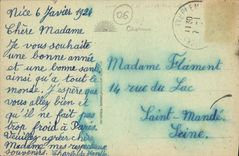 Nice 6 Janvier 1924
Chère Madame
Je vous souhaite
une bonne année
et une bonne santé
ainsi qu'a tout le
monde. J'espère que
vous allez bien et
qu'il ne fait pas
trop froid à Paris.
Veuillez agréer chère
Madame mes
souvenirs. Charles
06
Madame Flament
14 rue du Lac
Saint-Mandé
Seine.